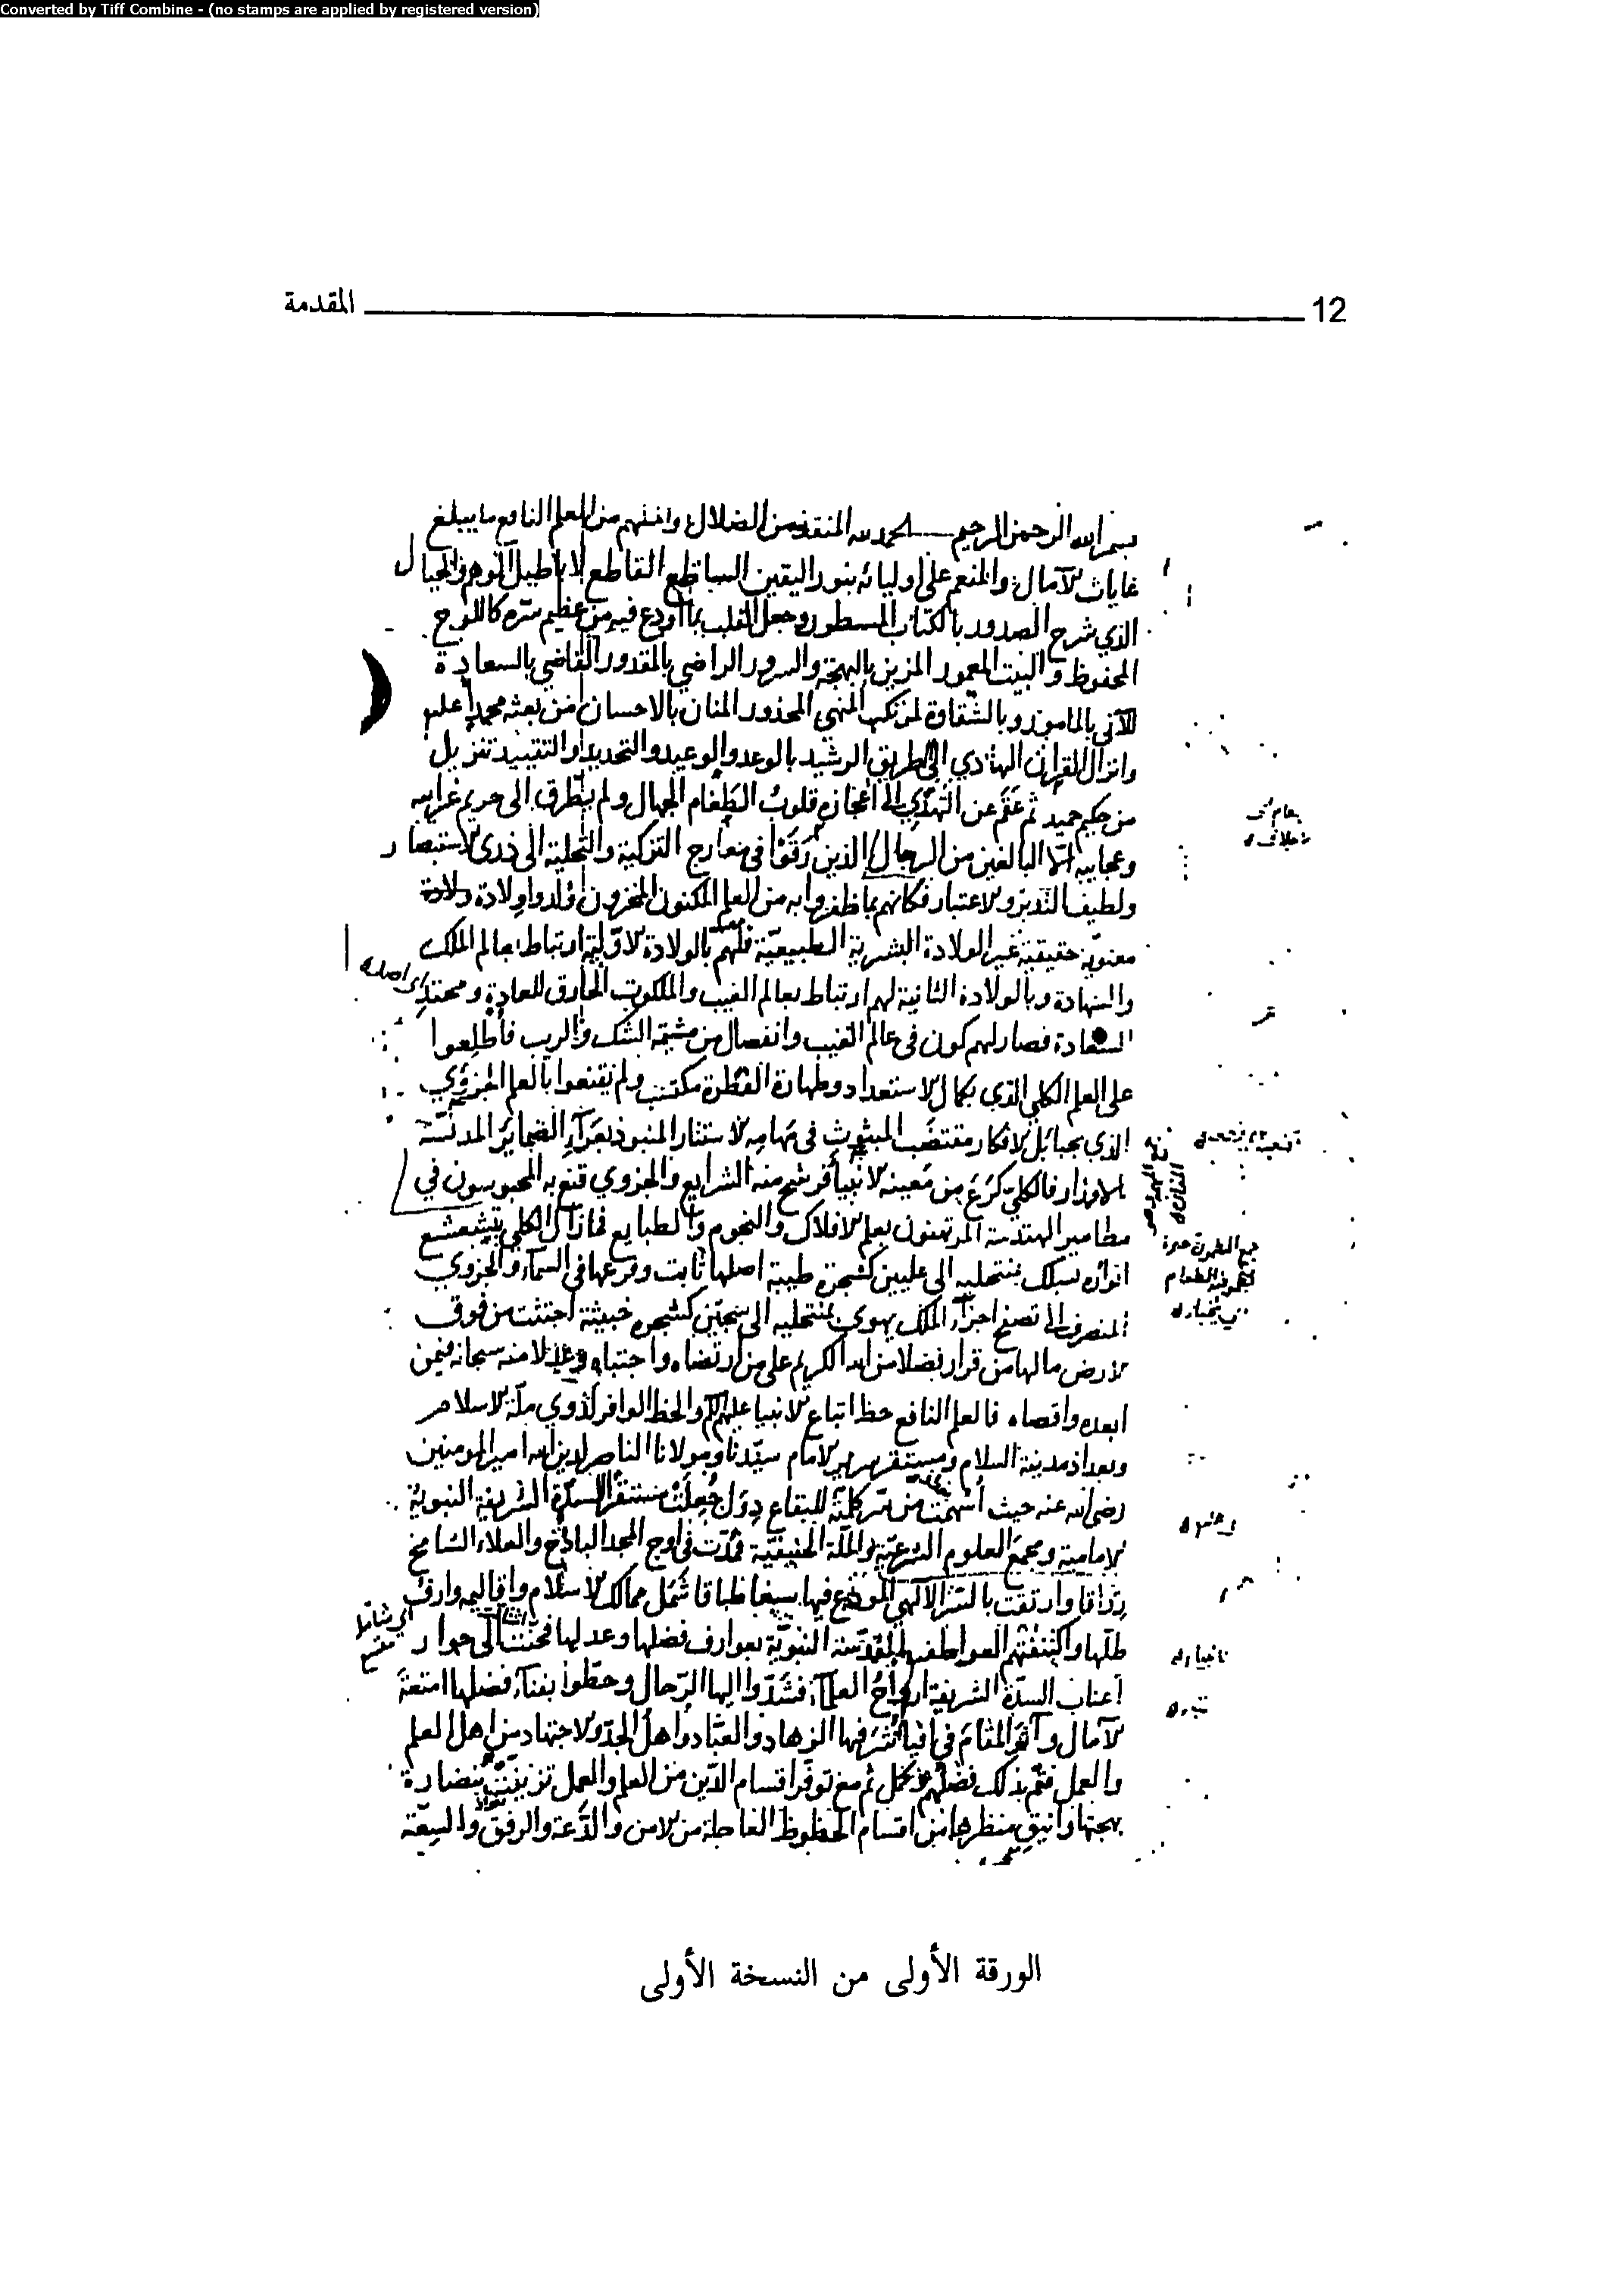 Converted by Tiff Combine - (no stamps are applied by registered version)
12 المقدمة
بسم الله الرحمن الرحيم الحمد لله المنقذ من الضلال من العلم النافع ما يبلغ
غايات الآمال والمنعم على اوليائه بنور اليقين الساطع القاطع لاباطيل الوهم والخيال
الذي شرح الصدور بالكتاب المسطور وجعل القلب بما اودع فيه من عظيم سره كاللوح
المحفوظ والبيت المعمور المزين بالبهجة والسرور الراضي بالمقدور القاضي بالسعادة
للآتي بالمامور وبالشقاوة لمرتكب المنهي المحذور المنان بالاحسان من بعثه محمدا عليه
وانزال القران الهادي الى الطريق الرشيد بالوعد والوعيد والتحديد والتقييد تنزيل
من حكيم حميد ثم عقم عن التهدي الى اعجازه قلوب الطغام الجهال ولم يطرق الى حريم غرايبه
وعجايبه الا البالغين من الرجال الذين رقوا في معارج التزكية والتحلية الى ذرى الاستبصار
ولطيف التدبر والاعتبار فكانهم بما ظفروا به من العلم المكنون المخزون ولدوا ولادة
معنوية حقيقية غير الولادة البشرية الطبيعية فلهم بالولادة الاولية ارتباط بعالم الملك
والشهادة وبالولادة الثانية لهم ارتباط بعالم الغيب والملكوت الخارق للعادة ومحتد
السعادة فصار لهم كون في عالم الغيب وانفصال من مشيمة الشك والريب فاطلعوا
على العلم الكلي الذي بكمال الاستعداد وطهارة الفطرة مكتسب ولم يقنعوا بالعلم الجزوي
الذي بحبائل الافكار مقتضب المبثوث في مهامه الاستتار المنبوذ بعراء الضمائر المدنسة
بالاوزار فالكلي كرع من معينه الانبيا فرشح منه الشرايع والجزوي قنع به المحبوسون في
مطامير الهندسة المرتهنون بعلم الافلاك والنجوم والطبايع فما زال الكلي يتشعشع
انواره يسلك بمنتحليه الى عليين كشجرة طيبة اصلها ثابت وفرعها في السماء والجزوي
المنصرف الى تصفح اجزاء الملك يهوي بمنتحليه الى سجين كشجرة خبيثة اجتثت من فوق
الارض ما لها من قرار فضلا من الله الكريم على من ارتضاه واجتباه وعدلا منه سبحانه فيمن
ابعده واقصاه فالعلم النافع حظ اتباع الانبيا عليهم والحظ الوافر لذوي ملة الاسلام
وبغداد مدينة السلام ومستقر سرير الامام سيدنا ومولانا الناصر لدين الله امير المومنين
رضي الله عنه حيث من للبقاع دول جعلت مستقر السدة الشريفة النبوية
الامامية ومجمع العلوم الشرعية والملة الحنيفية في اوج المجد الباذخ والعلاء الشامخ
رواقا وارتقت بالسر الالهي المودع فيها سبعا طباقا شمل ممالك الاسلام واقاليمه وارف
ظلها واكتنفتهم العواطف المقدسة النبوية بعوارف فضلها وعدلها فحنت الى جوار
اعتاب السدة الشريفة ارواح العلماء فشدوا اليها الرحال وحطوا بفناء فضلها امتعة
الآمال وآثر المقام في الزهاد والعباد واهل الجد والاجتهاد من اهل العلم
والعمل فتم بذلك فضلهم وكمل ثم مع توفر اقسام الدين من العلم والعمل تزينت بنضارة
بهجتها وانيق منظرها من اقسام الحظوظ العاجلة من الامن والدعة والرفق والسعة
الورقة الأولى من النسخة الأولى